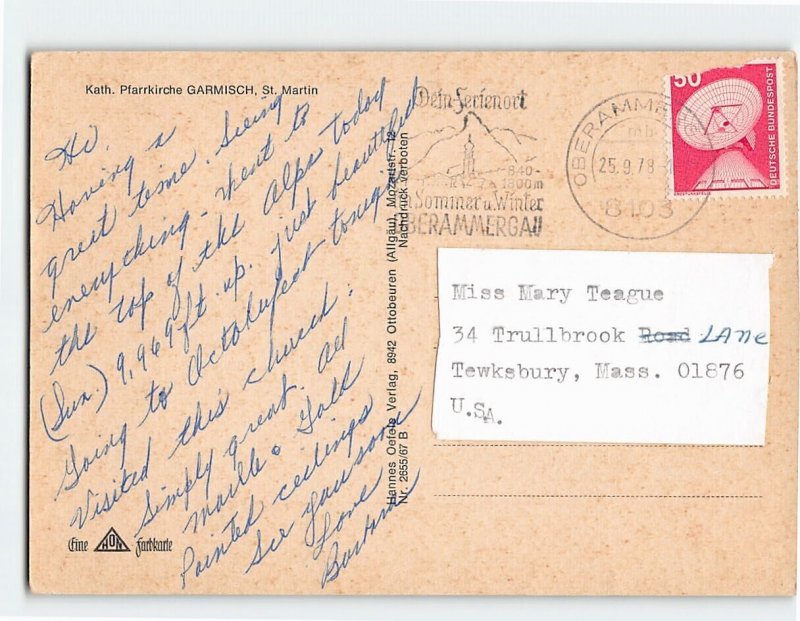 Kath. Pfarrkirche GARMISCH, St. Martin
Hi,
Having a
great time. Seeing
everything - went to
the top of the Alps today
(Sun.) 9,969 ft. up. just beautiful
Going to Octoberfest tonight
Visited this church.
Simply great. All
marble. Gold
Painted ceilings
See you soon
Love
Barbara
Eine HON Farbkarte
Hannes Oefele Verlag, 8942 Ottobeuren (Allgäu), Mozartstr. 12
Nr. 2655/67 B Nachdruck verboten
Dein Ferienort
840-
1800m
Sommer u. Winter
OBERAMMERGAU
OBERAMME
mb
25.9.78
8103
50
DEUTSCHE BUNDESPOST
Miss Mary Teague
34 Trullbrook Road LANE
Tewksbury, Mass. 01876
U.SA.